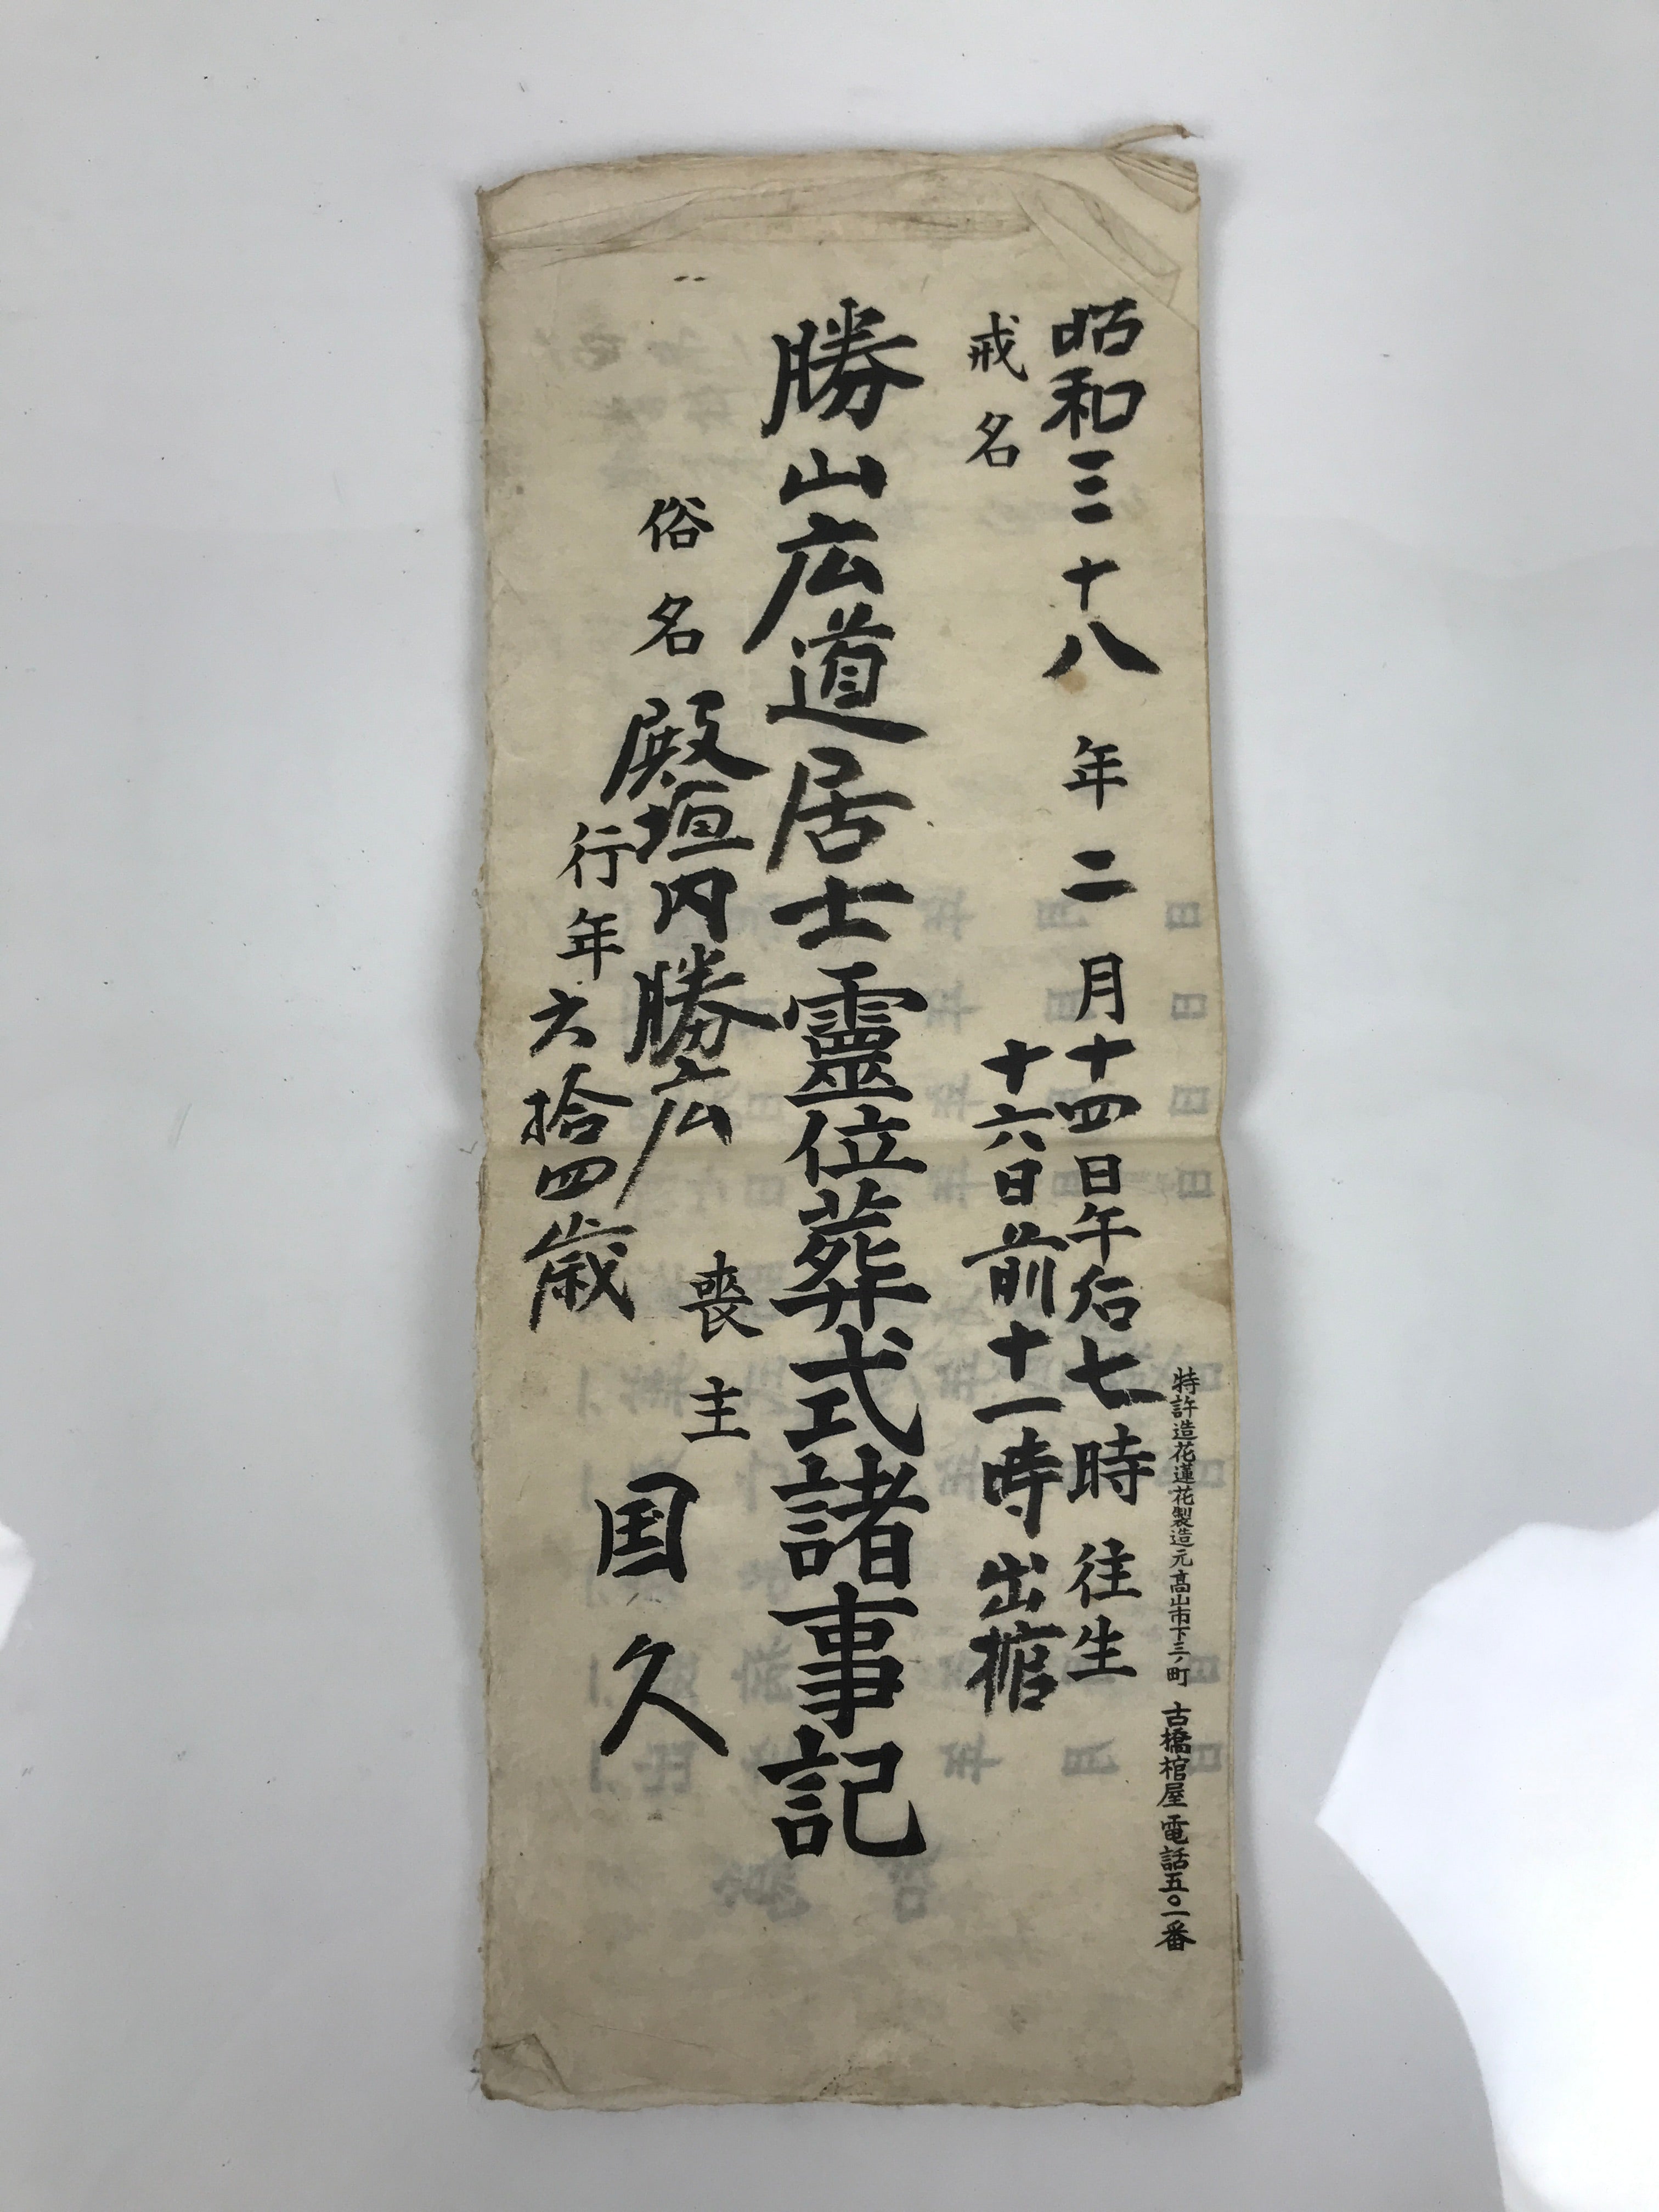 特許造花蓮花製造元高山市下三ノ町 古橋棺屋 電話五〇一番
昭和三十八年二月十四日午后七時往生
十六日前十一時出棺
戒名
勝山広道居士靈位葬式諸事記
俗名 殿垣内勝広
行年六拾四歳
喪主 国久